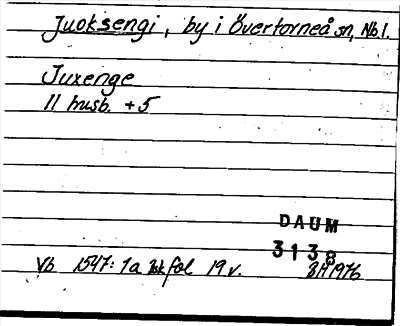 Juoksengi, by i Övertorneå sn, Nbl.
Juxenge
11 husb. +5
DAUM
3138
Vb 1547: 1a fol 19 v. BH 1976